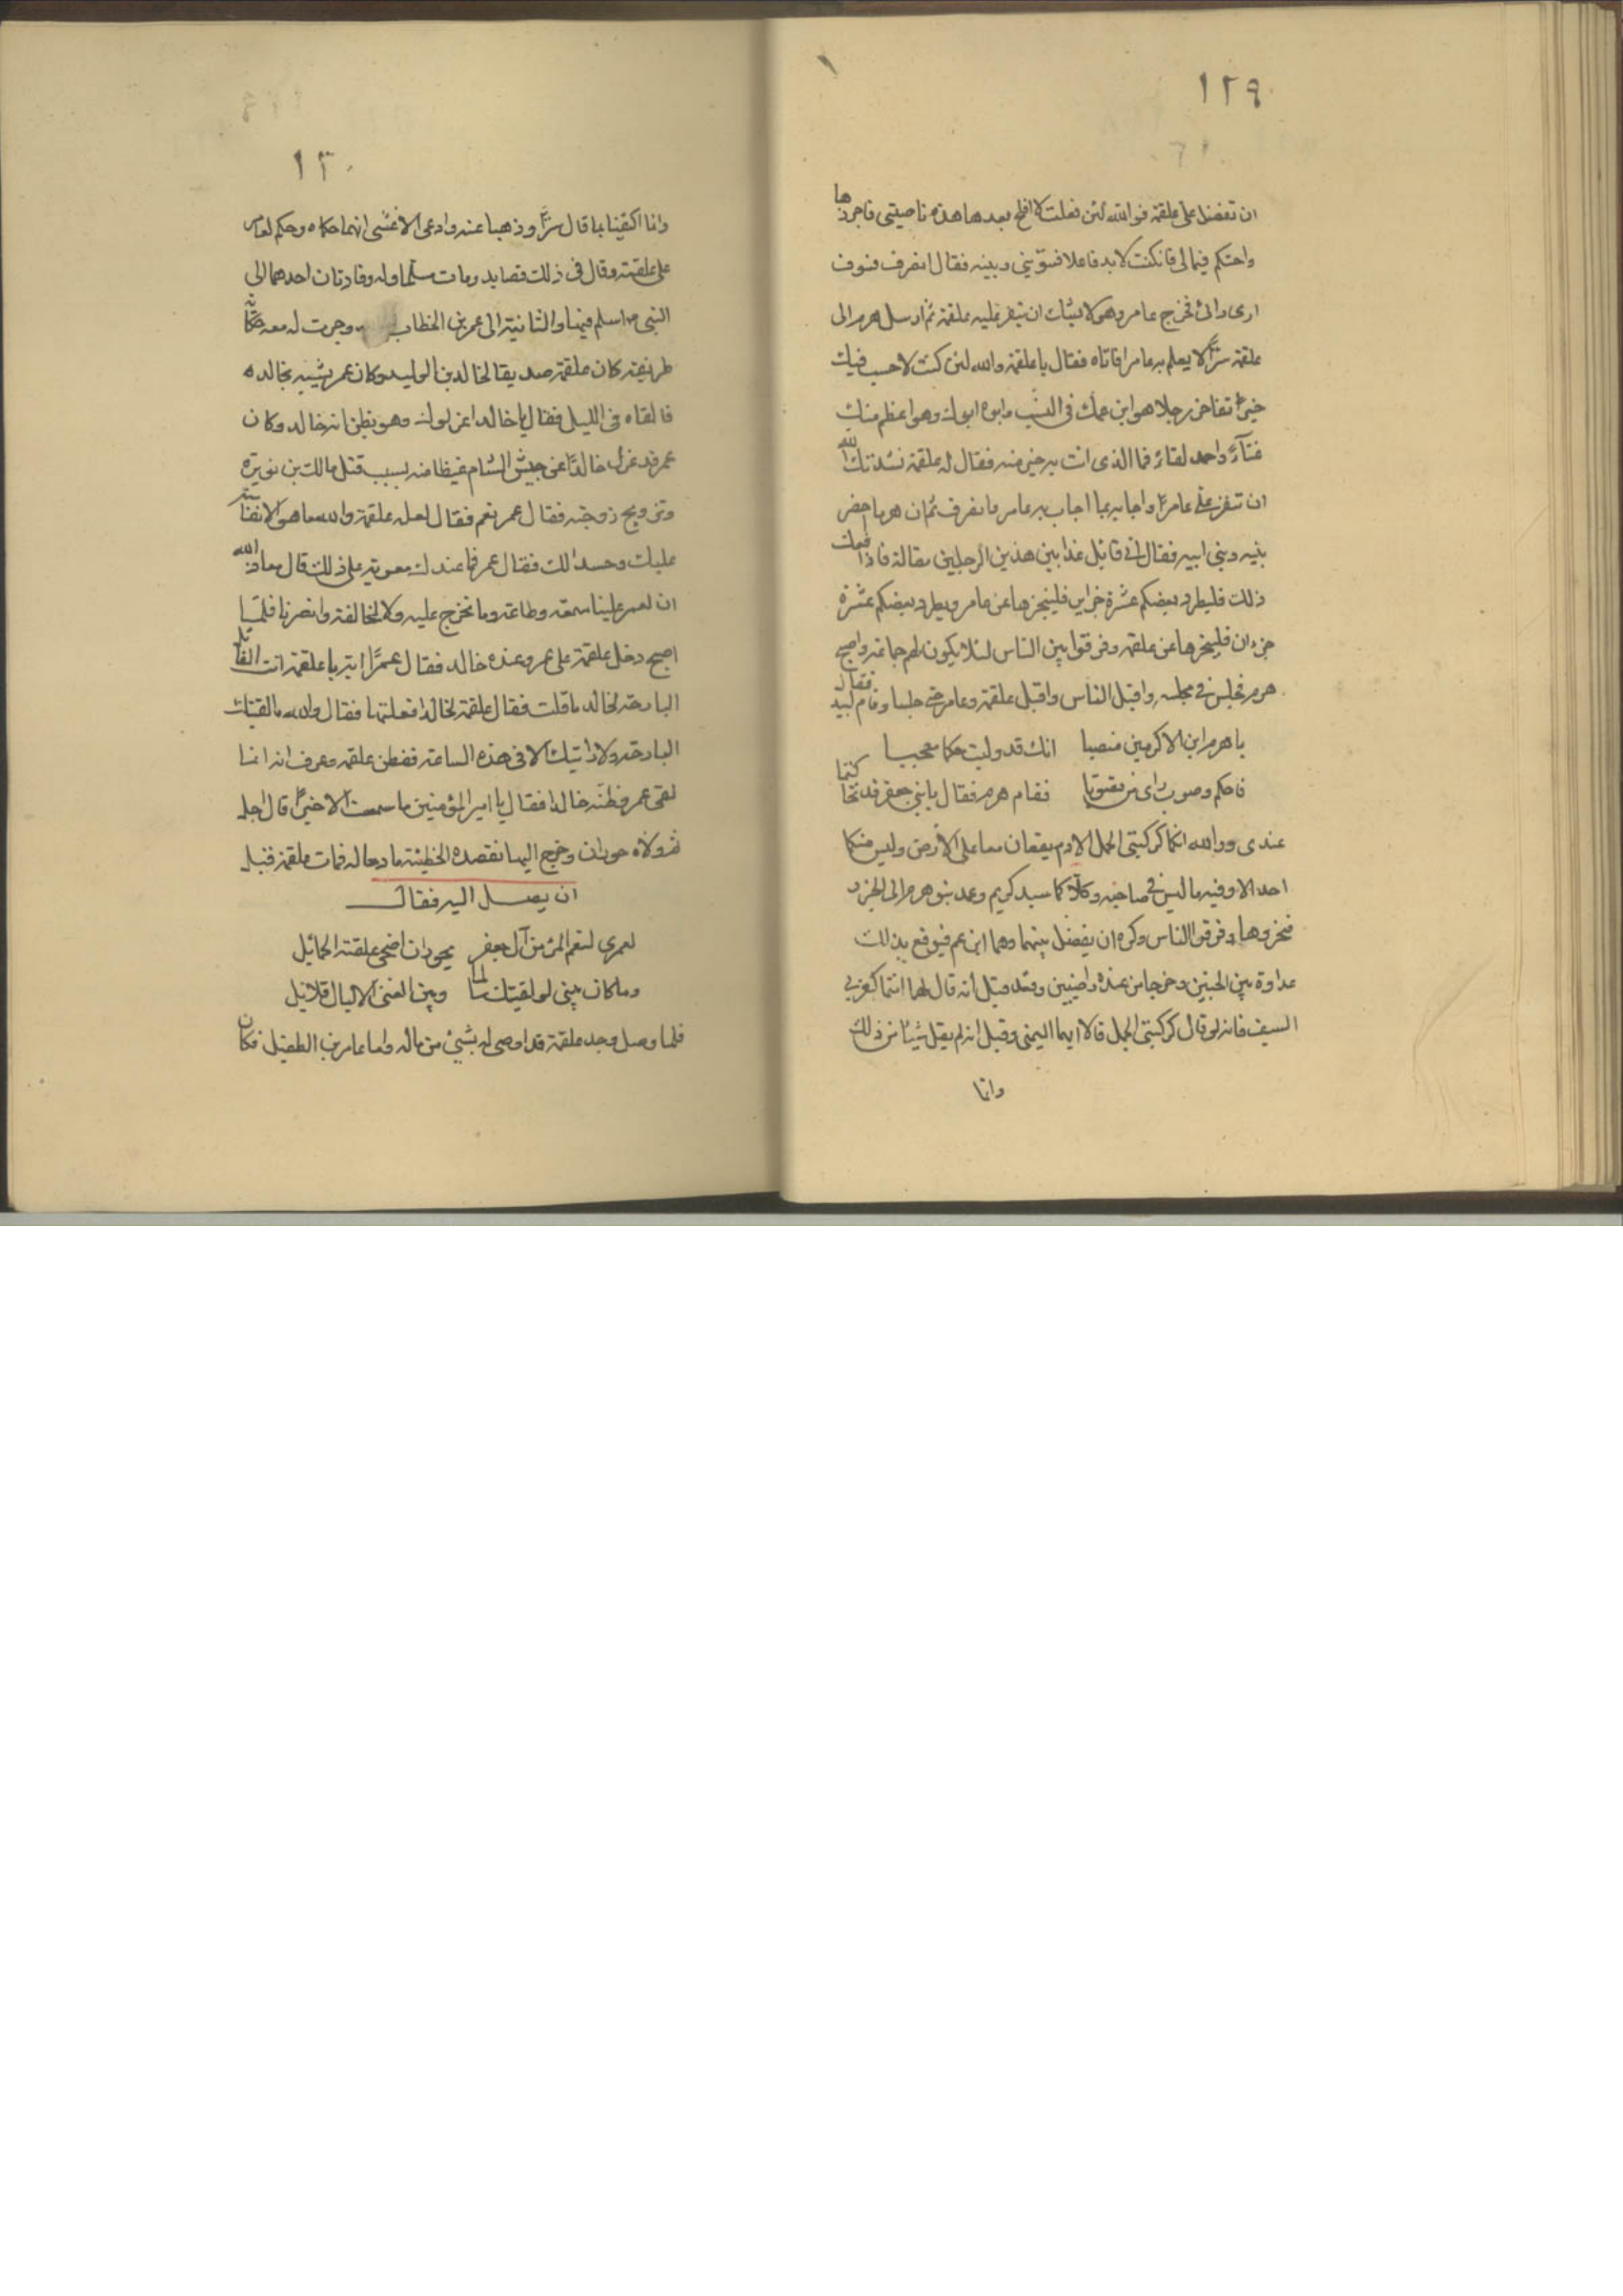 ١٢٩
ان تفضل على علقمة فوالله لئن فعلت لا افلح بعدها هذه ناصيتي فاجززها
واحتكم في مالي فانكنت لابد فاعلا فسوّ بيني وبينه فقال انصرف فسوف
ارى رائي فخرج عامر وهو لا يشك ان ينفر عليه علقمة ثم ارسل هرم الى
علقمة سرًّا لا يعلم به عامر فاتاه فقال يا علقمة والله لئن كنت لاحسب فيك
خيرًا تفاخر رجلا هو ابن عمك في النسب وابوه ابوك وهو اعظم منك
غناءً واحمد لقاءً فما الذي انت به خير منه فقال له علقمة نشدتك الله
ان تنفر علي عامرًا واجابه بما اجاب به عامر فانصرف ثم ان هرما احضر
بنيه وبني ابيه فقال اني قائل غدا بين هذين الرجلين مقالة فاذا فعلت
ذلك فليطرد بعضكم عشرة جزاير فلينحرها عن عامر ويطرد بعضكم عشرة
جزران فلينحرها عن علقمة وفرقوا بين الناس لئلا يكون لهم جماعة واصبح
هرم فجلس في مجلسه واقبل الناس واقبل علقمة وعامر حتى جلسا وقام لبيد فقال
يا هرم ابن الاكرمين منصبا انك قد وليت حكما معجبا
فاحكم وصوب راي من تصوبا فقام هرم فقال يا بني جعفر قد تحاكمتما
عندي ووالله انكما كركبتي الجمل الادم يقعان معا على الارض وليس منكما
احد الا وفيه ما ليس في صاحبه وكلاكما سيد كريم وعمد بنو هرم الى الجزر
فنحروها وفرقوا الناس وكره ان يفضل بينهما وهما ابن عم فيوقع بذلك
عداوة بين الحيين وخرجا من عنده راضيين وقد قيل انه قال لهما انتما كغربي
السيف فانه لو قال كركبتي الجمل قالا ايما اليمنى وقيل انه لم يقل شيئا من ذلك
وانما
١٣٠
وانما اكتفينا بما قال سرًّا وذهبا عنه وادعى الاعشى انهما حكماه وحكم لعامر
على علقمة وقال في ذلك قصايد ومات مسلما وله وفادتان احدهما الى
النبي م اسلم فيها والثانية الى عمر بن الخطاب وجرت له معه حكاية
طريفة كان علقمة صديقا لخالد بن الوليد وكان عمر يشبه بخالد ه
فالقاه في الليل فقال يا خالد اعزلوك وهو يظن انه خالد وكان
عمر قد عزل خالدًا عن جيش الشام غيظا منه بسبب قتل مالك بن نويرة
وتزويج زوجته فقال عمر نعم فقال له علقمة والله ما هو الا نفاسة
عليك وحسدا لك فقال عمر فما عندك معونة على ذلك قال معاذ الله
ان لعمر علينا سمعة وطاعة وما نخرج عليه ولا لمخالفة وانصرنا فلما
اصبح دخل علقمة على عمر وعنده خالد فقال عمرًا ايه يا علقمة انت القائل
البارحة لخالد ما قلت فقال علقمة لخالد افعلتها فقال والله ما لقيتك
البارحة ولا رايتك الا في هذه الساعة ففطن علقمة وعرف انه انما
لقي عمر فظنّه خالدا فقال يا امير المؤمنين ما سمعت الا خيرًا قال اجل
ثم ولاه حوران وخرج اليها فقصده الحطيئة مادحا له فمات علقمة قبل
ان يصل اليه فقال
لعمري لنعم المرء من آل جعفر بحوران اضحى علقته الحبائل
وما كان بيني لو لقيتك سالما وبين الغنى الا ليال قلائل
فلما وصل وجد علقمة قد اوصى له بشيئ من ماله واما عامر بن الطفيل فكان